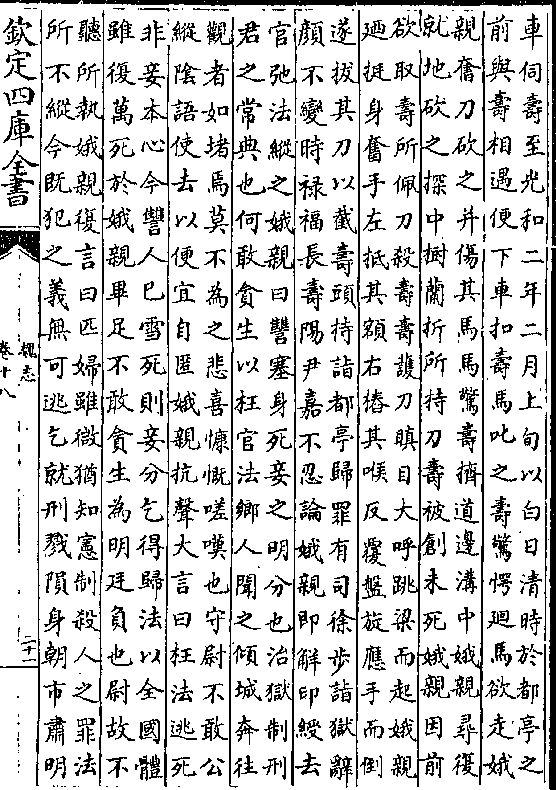 車伺壽至光和二年二月上旬以白日清時於都亭之
前與壽相遇便下車扣壽馬叱之壽驚愕廻馬欲走娥
親奮刀砍之并傷其馬馬驚壽擠道邊溝中娥親尋復
就地砍之探中樹蘭折所持刀壽被創未死娥親因前
欲取壽所佩刀殺壽壽護刀瞋目大呼跳梁而起娥親
廼挺身奮手左抵其額右樁其喉反覆盤旋應手而倒
遂拔其刀以截壽頭持詣都亭歸罪有司徐步詣獄辭
顔不變時禄福長壽陽尹嘉不忍論娥親即解印綬去
官弛法縱之娥親曰讐塞身死妾之明分也治獄制刑
君之常典也何敢貪生以枉官法鄉人聞之傾城奔往
觀者如堵焉莫不為之悲喜慷慨嗟嘆也守尉不敢公
縱陰語使去以便宜自匿娥親抗聲大言曰枉法逃死
非妾本心今讐人已雪死則妾分乞得歸法以全國體
雖復萬死於娥親畢足不敢貪生為明廷負也尉故不
聽所執娥親復言曰匹婦雖微猶知憲制殺人之罪法
所不縱今既犯之義無可逃乞就刑戮隕身朝市肅明
欽定四庫全書
魏志
卷十八
二十一